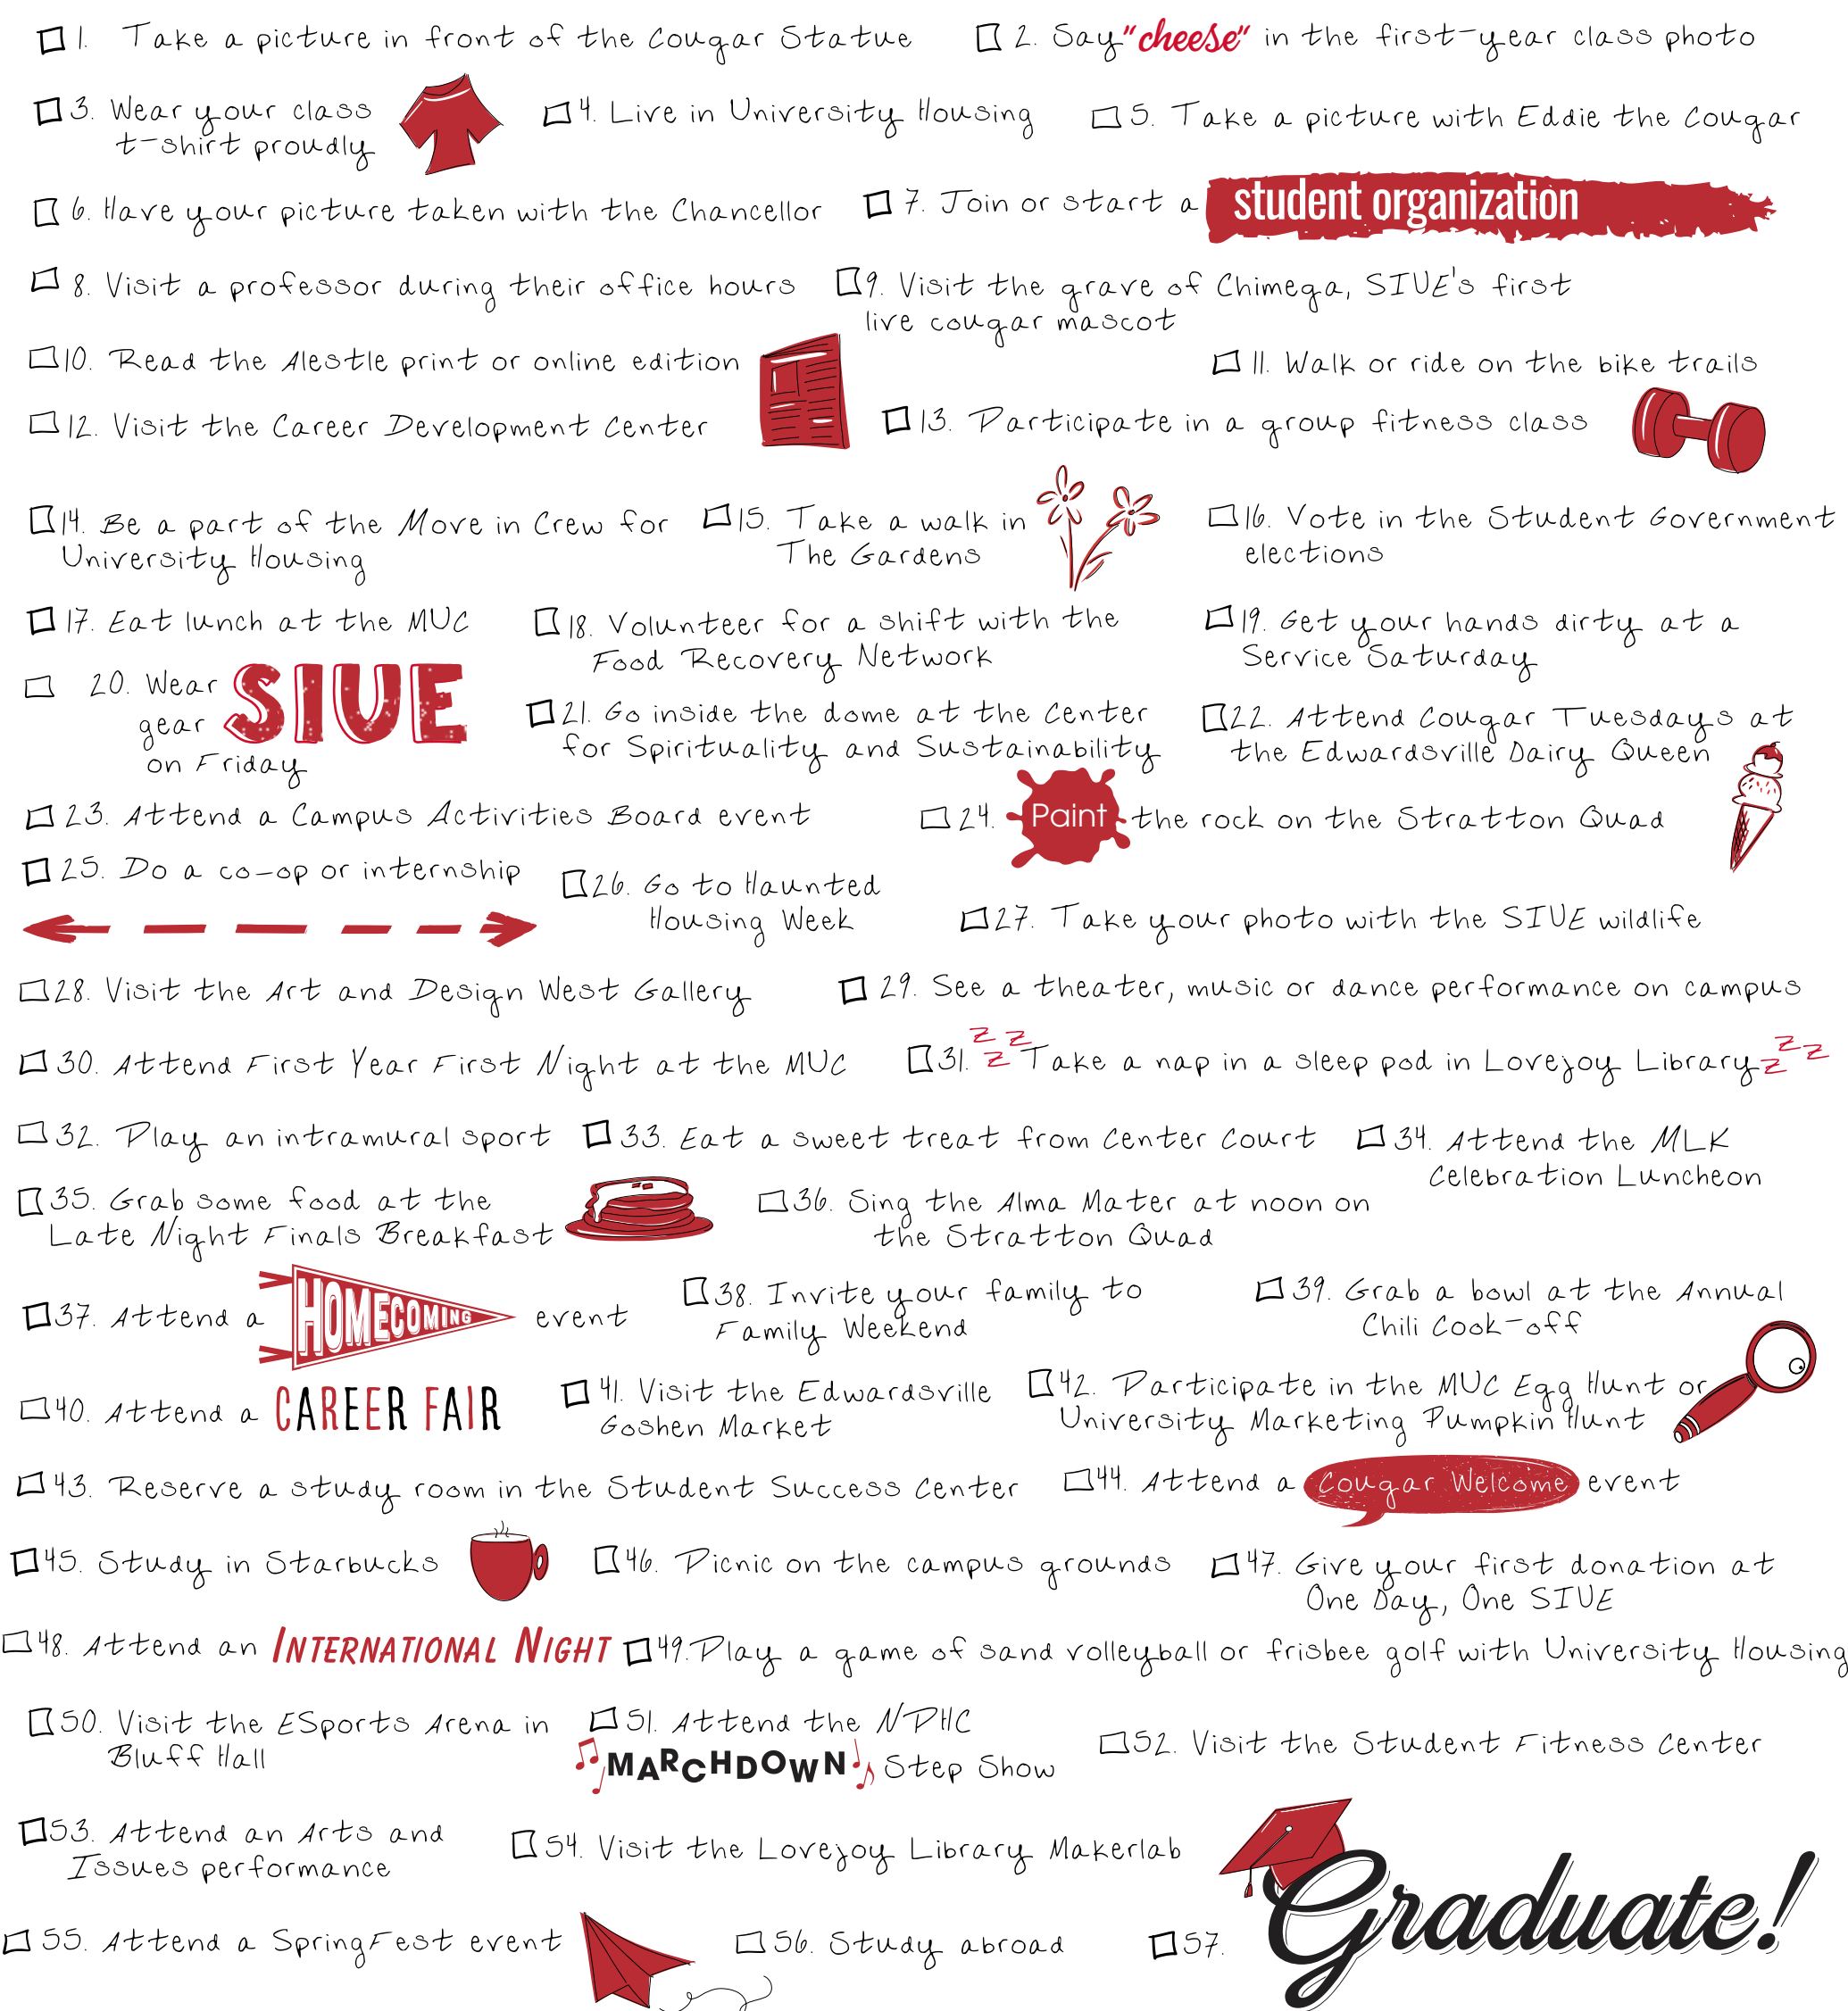 1. Take a picture in front of the Cougar Statue
2. Say "cheese" in the first-year class photo
3. Wear your class
t-shirt proudly
4. Live in University Housing
5. Take a picture with Eddie the Cougar
6. Have your picture taken with the Chancellor
7. Join or start a student organization
8. Visit a professor during their office hours
9. Visit the grave of Chimega, SIUE's first
live cougar mascot
10. Read the Alestle print or online edition
11. Walk or ride on the bike trails
12. Visit the Career Development Center
13. Participate in a group fitness class
14. Be a part of the Move in Crew for
University Housing
15. Take a walk in
The Gardens
16. Vote in the Student Government
elections
17. Eat lunch at the MUC
18. Volunteer for a shift with the
Food Recovery Network
19. Get your hands dirty at a
Service Saturday
20. Wear SIUE
gear
on Friday
21. Go inside the dome at the Center
for Spirituality and Sustainability
22. Attend Cougar Tuesdays at
the Edwardsville Dairy Queen
23. Attend a Campus Activities Board event
24. Paint the rock on the Stratton Quad
25. Do a co-op or internship
26. Go to Haunted
Housing Week
27. Take your photo with the SIUE wildlife
28. Visit the Art and Design West Gallery
29. See a theater, music or dance performance on campus
30. Attend First Year First Night at the MUC
31. z z z Take a nap in a sleep pod in Lovejoy Library z z z
32. Play an intramural sport
33. Eat a sweet treat from Center Court
34. Attend the MLK
Celebration Luncheon
35. Grab some food at the
Late Night Finals Breakfast
36. Sing the Alma Mater at noon on
the Stratton Quad
37. Attend a HOMECOMING event
38. Invite your family to
Family Weekend
39. Grab a bowl at the Annual
Chili Cook-off
40. Attend a CAREER FAIR
41. Visit the Edwardsville
Goshen Market
42. Participate in the MUC Egg Hunt or
University Marketing Pumpkin Hunt
43. Reserve a study room in the Student Success Center
44. Attend a Cougar Welcome event
45. Study in Starbucks
46. Picnic on the campus grounds
47. Give your first donation at
One Day, One SIUE
48. Attend an INTERNATIONAL NIGHT
49. Play a game of sand volleyball or frisbee golf with University Housing
50. Visit the ESports Arena in
Bluff Hall
51. Attend the NPHC
MARCHDOWN Step Show
52. Visit the Student Fitness Center
53. Attend an Arts and
Issues performance
54. Visit the Lovejoy Library Makerlab
55. Attend a SpringFest event
56. Study abroad
57. Graduate!